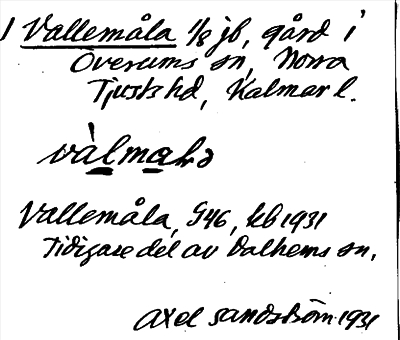 1 Vallemåla 1/8 jb, gård i
Överums sn, Norra
Tjusts hd, Kalmar l.
Vallemåla, G46, kb 1931
Tidigare del av Dalhems sn.
Axel Sandström 1931